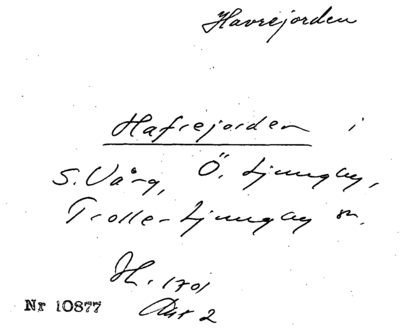 Havrejorden
Hafrejorden i
S. Vång, Ö. Ljungby,
Trolle-Ljungby sn.
1701
Akt 2
Nr 10877